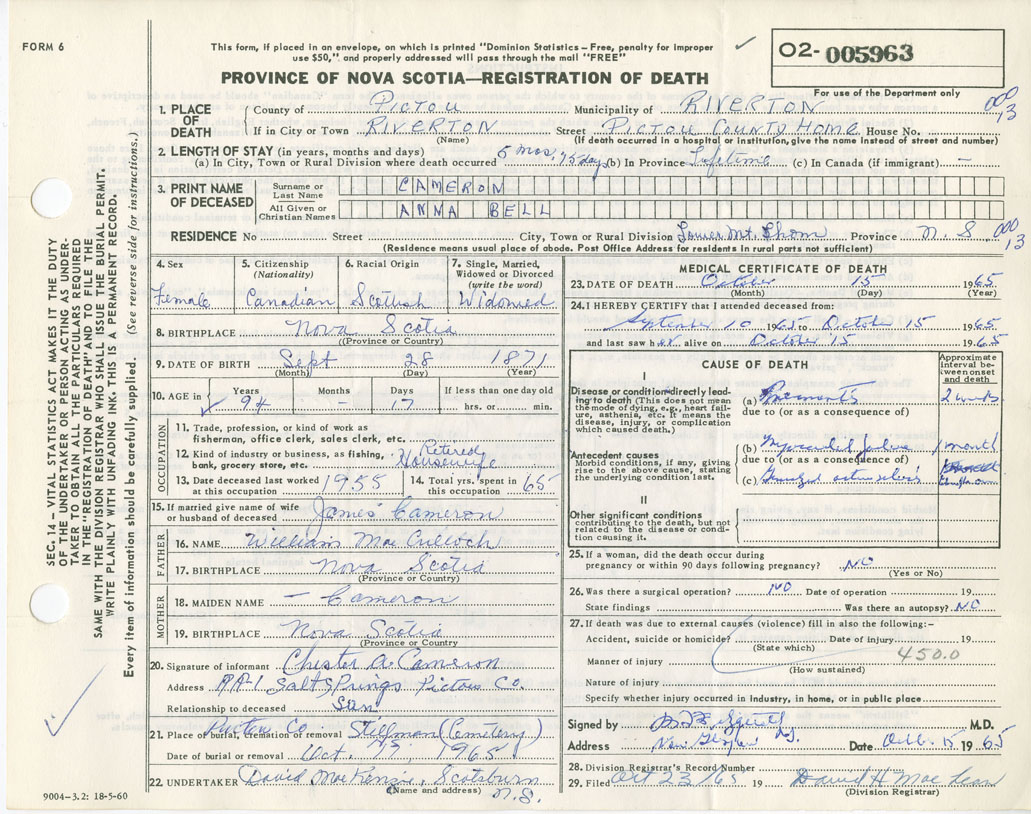 FORM 6
This form, if placed in an envelope, on which is printed "Dominion Statistics—Free, penalty for improper
use $50," and properly addressed will pass through the mail "FREE"
✓
02-005963
For use of the Department only
PROVINCE OF NOVA SCOTIA—REGISTRATION OF DEATH
000
13
1. PLACE OF DEATH
County of Pictou Municipality of RIVERTON
If in City or Town RIVERTON Street PICTOU COUNTY HOME House No.
(Name) (If death occurred in a hospital or institution, give the name instead of street and number)
2. LENGTH OF STAY (in years, months and days)
(a) In City, Town or Rural Division where death occurred 5 mos. 15 days (b) In Province Lifetime (c) In Canada (if immigrant) —
3. PRINT NAME OF DECEASED
Surname or Last Name CAMERON
All Given or Christian Names ANNA BELL
RESIDENCE No. Street City, Town or Rural Division Lower Mt. Thom Province N. S.
000
13
(Residence means usual place of abode. Post Office Address for residents in rural parts not sufficient)
4. Sex
Female
5. Citizenship
(Nationality)
Canadian
6. Racial Origin
Scottish
7. Single, Married,
Widowed or Divorced
(write the word)
Widowed
8. BIRTHPLACE Nova Scotia
(Province or Country)
9. DATE OF BIRTH Sept 28 1871
(Month) (Day) (Year)
10. AGE in
Years Months Days If less than one day old
94 — 17 hrs. or min.
OCCUPATION
11. Trade, profession, or kind of work as
fisherman, office clerk, sales clerk, etc.
12. Kind of industry or business, as fishing,
bank, grocery store, etc. Retired Housewife
13. Date deceased last worked
at this occupation 1955
14. Total yrs. spent in
this occupation 65
15. If married give name of wife
or husband of deceased James Cameron
FATHER
16. NAME William MacCulloch
17. BIRTHPLACE Nova Scotia
(Province or Country)
MOTHER
18. MAIDEN NAME — Cameron
19. BIRTHPLACE Nova Scotia
(Province or Country)
20. Signature of informant Chester A. Cameron
Address RR-1 Salt Springs Pictou Co.
Relationship to deceased Son
21. Place of burial, cremation or removal Pictou Co Stillman (Cemetery)
N.S.
Date of burial or removal Oct. 1965
22. UNDERTAKER David MacKenzie, Scotsburn
(Name and address) N.S.
9004-3.2: 18-5-60
MEDICAL CERTIFICATE OF DEATH
23. DATE OF DEATH October 15 1965
(Month) (Day) (Year)
24. I HEREBY CERTIFY that I attended deceased from:
September 10 1965 to October 15 1965
and last saw her alive on October 15 1965
CAUSE OF DEATH
Approximate
interval be-
tween onset
and death
I
Disease or condition directly lead-
ing to death (This does not mean
the mode of dying, e.g., heart fail-
ure, asthenia, etc. It means the
disease, injury, or complication
which caused death.)
(a) Pneumonitis 2 weeks
due to (or as a consequence of)
Antecedent causes
Morbid conditions, if any, giving
rise to the above cause, stating
the underlying condition last.
(b) Myocardial failure 1 month
due to (or as a consequence of)
(c) Generalized arteriosclerosis Unknown
II
Other significant conditions
contributing to the death, but not
related to the disease or condi-
tion causing it.
25. If a woman, did the death occur during
pregnancy or within 90 days following pregnancy? NO
(Yes or No)
26. Was there a surgical operation? NO Date of operation 19
State findings Was there an autopsy? NO
27. If death was due to external causes (violence) fill in also the following:—
Accident, suicide or homicide? Date of injury 19
(State which)
450.0
Manner of injury
(How sustained)
Nature of injury
Specify whether injury occurred in industry, in home, or in public place
Signed by M.D.
Address New Glasgow N.S. Date Oct. 15 1965
28. Division Registrar's Record Number
29. Filed Oct 23/65 19 David H MacLean
(Division Registrar)
SEC. 14 – VITAL STATISTICS ACT MAKES IT THE DUTY
OF THE UNDERTAKER OR PERSON ACTING AS UNDER-
TAKER TO OBTAIN ALL THE PARTICULARS REQUIRED
IN THE "REGISTRATION OF DEATH" AND TO FILE THE
SAME WITH THE DIVISION REGISTRAR WHO SHALL ISSUE THE BURIAL PERMIT.
WRITE PLAINLY WITH UNFADING INK. THIS IS A PERMANENT RECORD.
Every item of information should be carefully supplied. (See reverse side for instructions.)